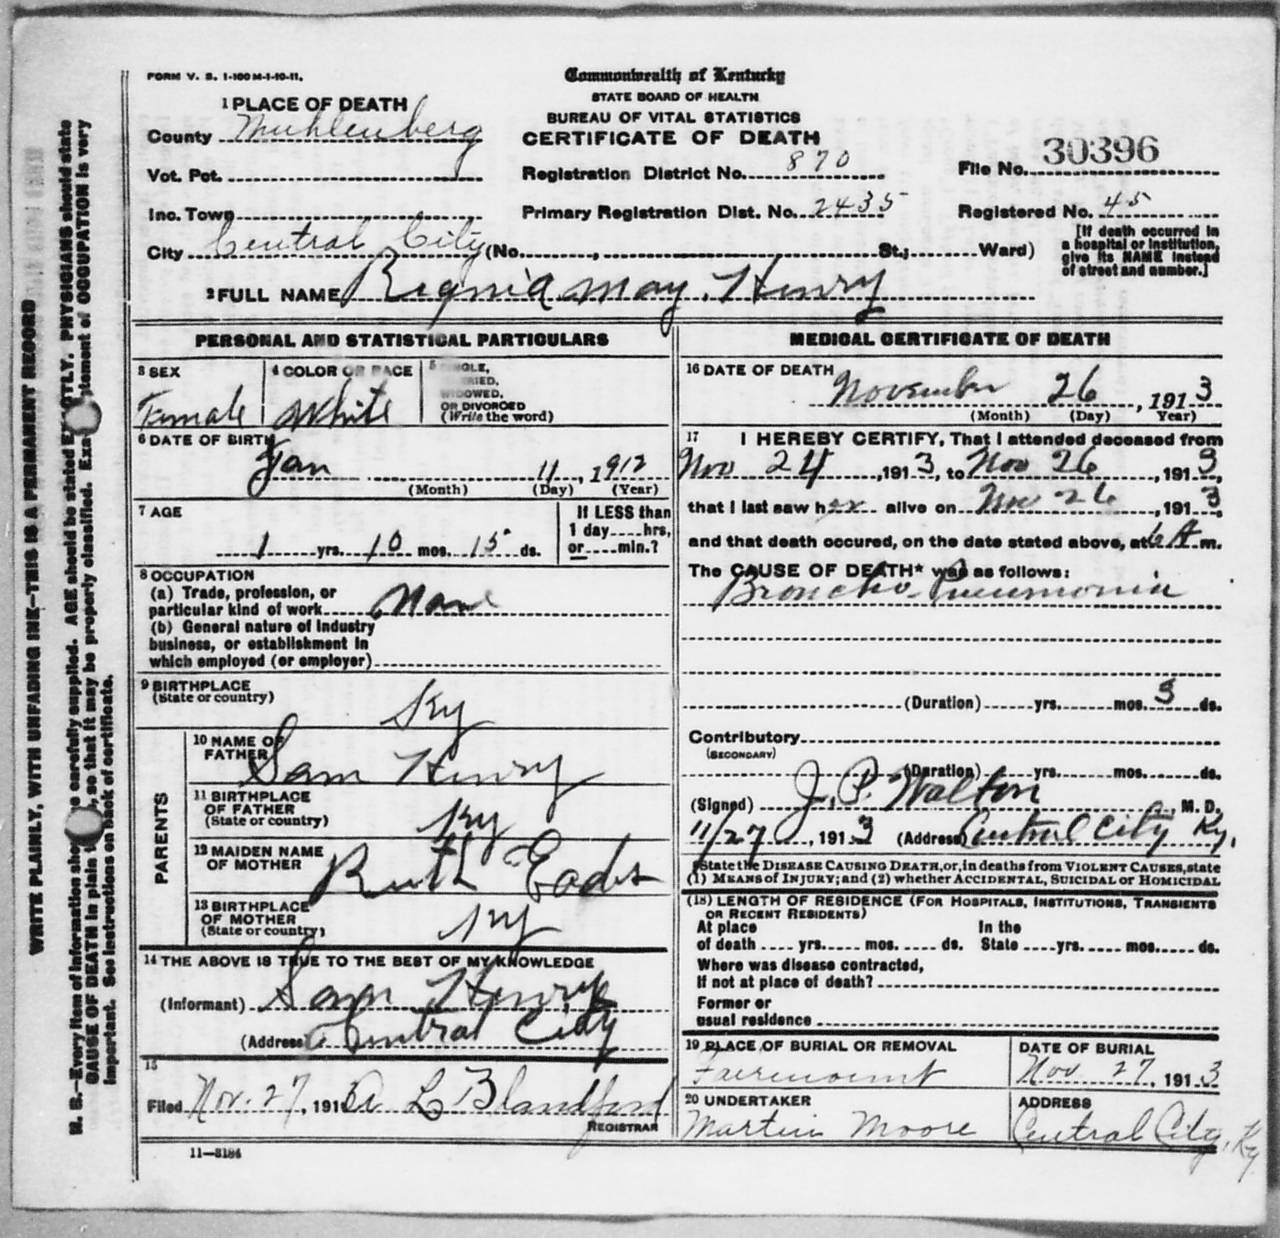 FORM V. S. 1-100 M-1-10-11.
Commonwealth of Kentucky
STATE BOARD OF HEALTH
BUREAU OF VITAL STATISTICS
CERTIFICATE OF DEATH
1 PLACE OF DEATH
County Muhlenberg
Vot. Pct.
Inc. Town
City Central City (No. , St.; Ward)
Registration District No. 870
Primary Registration Dist. No. 2435
File No. 30396
Registered No. 45
[If death occurred in
a hospital or institution,
give its NAME instead
of street and number.]
2 FULL NAME Regnia May Henry
PERSONAL AND STATISTICAL PARTICULARS
3 SEX
Female
4 COLOR OR RACE
White
5
WIDOWED,
OR DIVORCED
(Write the word)
6 DATE OF BIRTH
Jan 11, 1912
(Month) (Day) (Year)
7 AGE
1 yrs. 10 mos. 15 ds.
If LESS than
1 day hrs,
or min.?
8 OCCUPATION
(a) Trade, profession, or
particular kind of work None
(b) General nature of industry
business, or establishment in
which employed (or employer)
9 BIRTHPLACE
(State or country)
Ky
PARENTS
10 NAME OF
FATHER Sam Henry
11 BIRTHPLACE
OF FATHER
(State or country) Ky
12 MAIDEN NAME
OF MOTHER Ruth Eades
13 BIRTHPLACE
OF MOTHER
(State or country) Ky
14 THE ABOVE IS TRUE TO THE BEST OF MY KNOWLEDGE
(Informant) Sam Henry
(Address) Central City
15
Filed Nov. 27, 191 L Blandford
REGISTRAR
11-3184
MEDICAL CERTIFICATE OF DEATH
16 DATE OF DEATH
November 26, 1913
(Month) (Day) Year)
17 I HEREBY CERTIFY, That I attended deceased from
Nov 24, 1913, to Nov 26, 1913,
that I last saw her alive on Nov 26, 1913,
and that death occured, on the date stated above, at 6 A m.
The CAUSE OF DEATH* was as follows:
Broncho-Pneumonia
(Duration) yrs. mos. 3 ds.
Contributory
(SECONDARY)
(Duration) yrs. mos. ds.
(Signed) J. P. Walton, M. D.
11/27, 1913 (Address) Central City Ky.
State the DISEASE CAUSING DEATH, or, in deaths from VIOLENT CAUSES, state
(1) MEANS of INJURY; and (2) whether ACCIDENTAL, SUICIDAL or HOMICIDAL
(18) LENGTH OF RESIDENCE (FOR HOSPITALS, INSTITUTIONS, TRANSIENTS
OR RECENT RESIDENTS)
At place
of death yrs. mos. ds.
In the
State yrs. mos. ds.
Where was disease contracted,
If not at place of death?
Former or
usual residence
19 PLACE OF BURIAL OR REMOVAL
Fairmount
DATE OF BURIAL
Nov 27, 1913
20 UNDERTAKER
Martin Moore
ADDRESS
Central City, Ky
WRITE PLAINLY, WITH UNFADING INK—THIS IS A PERMANENT RECORD
N. B.—Every item of information should be carefully supplied. AGE should be stated EXACTLY. PHYSICIANS should state
CAUSE OF DEATH in plain , so that it may be properly classified. Exact statement of OCCUPATION is very
important. See instructions on back of certificate.